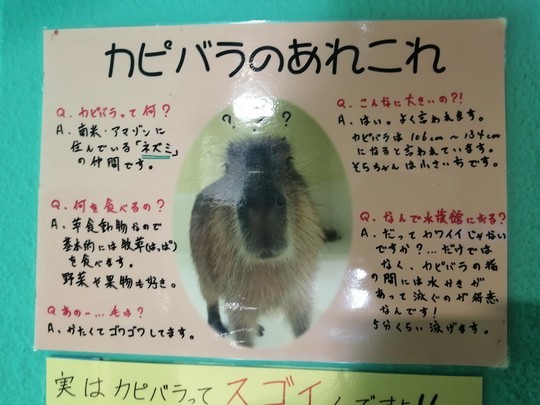 カピバラのあれこれ
Q. カピバラって何?
A. 南米・アマゾンに
住んでいる「ネズミ」
の仲間です。
Q. 何を食べるの?
A. 草食動物なので
基本的には牧草(はっぱ)
を食べます。
野菜や果物も好き。
Q. あのー… 毛は?
A. かたくてゴワゴワしてます。
? ? ?
Q. こんなに大きいの?!
A. はい。よく言われます。
カピバラは106cm〜134cm
になると言われています。
そらちゃんは小さい方です。
Q. なんで水族館に居る?
A. だってカワイイじゃない
ですか?…だけでは
なく、カピバラの指
の間には水かきが
あって泳ぐのが得意
なんです!
5分くらい泳げます。
実はカピバラってスゴイんですよ!!